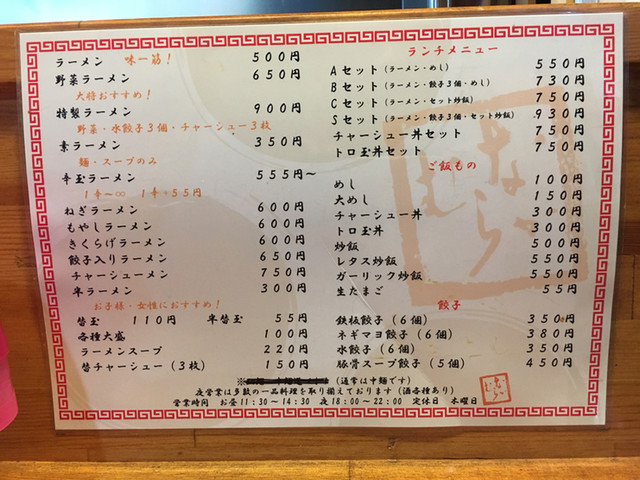 ラーメン 味一筋! 500円
野菜ラーメン 650円
大将おすすめ!
特製ラーメン 900円
野菜・水餃子3個・チャーシュー3枚
素ラーメン 350円
麺・スープのみ
辛玉ラーメン 555円～
1辛～∞ 1辛+55円
ねぎラーメン 600円
もやしラーメン 600円
きくらげラーメン 600円
餃子入りラーメン 650円
チャーシューメン 750円
半ラーメン 300円
お子様・女性におすすめ!
替玉 110円 半替玉 55円
各種大盛 100円
ラーメンスープ 220円
替チャーシュー(3枚) 150円
ランチメニュー
Aセット(ラーメン・めし) 550円
Bセット(ラーメン・餃子3個・めし) 730円
Cセット(ラーメン・セット炒飯) 750円
Sセット(ラーメン・餃子3個・セット炒飯) 930円
チャーシュー丼セット 750円
トロ玉丼セット 750円
ご飯もの
めし 100円
大めし 150円
チャーシュー丼 300円
トロ玉丼 300円
炒飯 500円
レタス炒飯 550円
ガーリック炒飯 550円
生たまご 55円
餃子
鉄板餃子(6個) 350円
ネギマヨ餃子(6個) 380円
水餃子(6個) 350円
豚骨スープ餃子(5個) 450円
※ (通常は中麺です)
夜営業は多数の一品料理を取り揃えております(酒各種あり)
営業時間 お昼11:30~14:30 夜18:00~22:00 定休日 木曜日